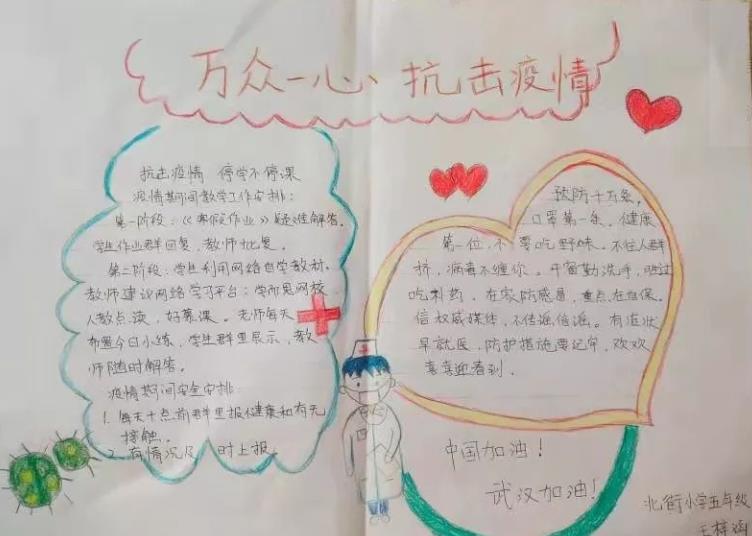 万众一心、抗击疫情
抗击疫情 停学不停课
疫情期间教学工作安排：
第一阶段：《寒假作业》疑难解答。
学生作业群回复，教师批复。
第二阶段：学生利用网络自学教材。
教师建议网络学习平台：学而思网校
人教点读，好慕课。老师每天
布置今日小练，学生群里展示，教
师随时解答。
疫情期间安全安排：
1. 每天十点前群里报健康和有无
接触。
2. 有情况及时上报。
预防千万条，
口罩第一条，健康
第一位，不要吃野味，不往人群
挤，病毒不缠你。开窗勤洗手，
吃 药，在家防感冒，重点在自保。
信权威媒体，不传谣信谣。有症状
早就医，防护措施要记牢，欢欢
喜喜迎春到．
中国加油！
武汉加油！
北街小学五年级
王梓涵